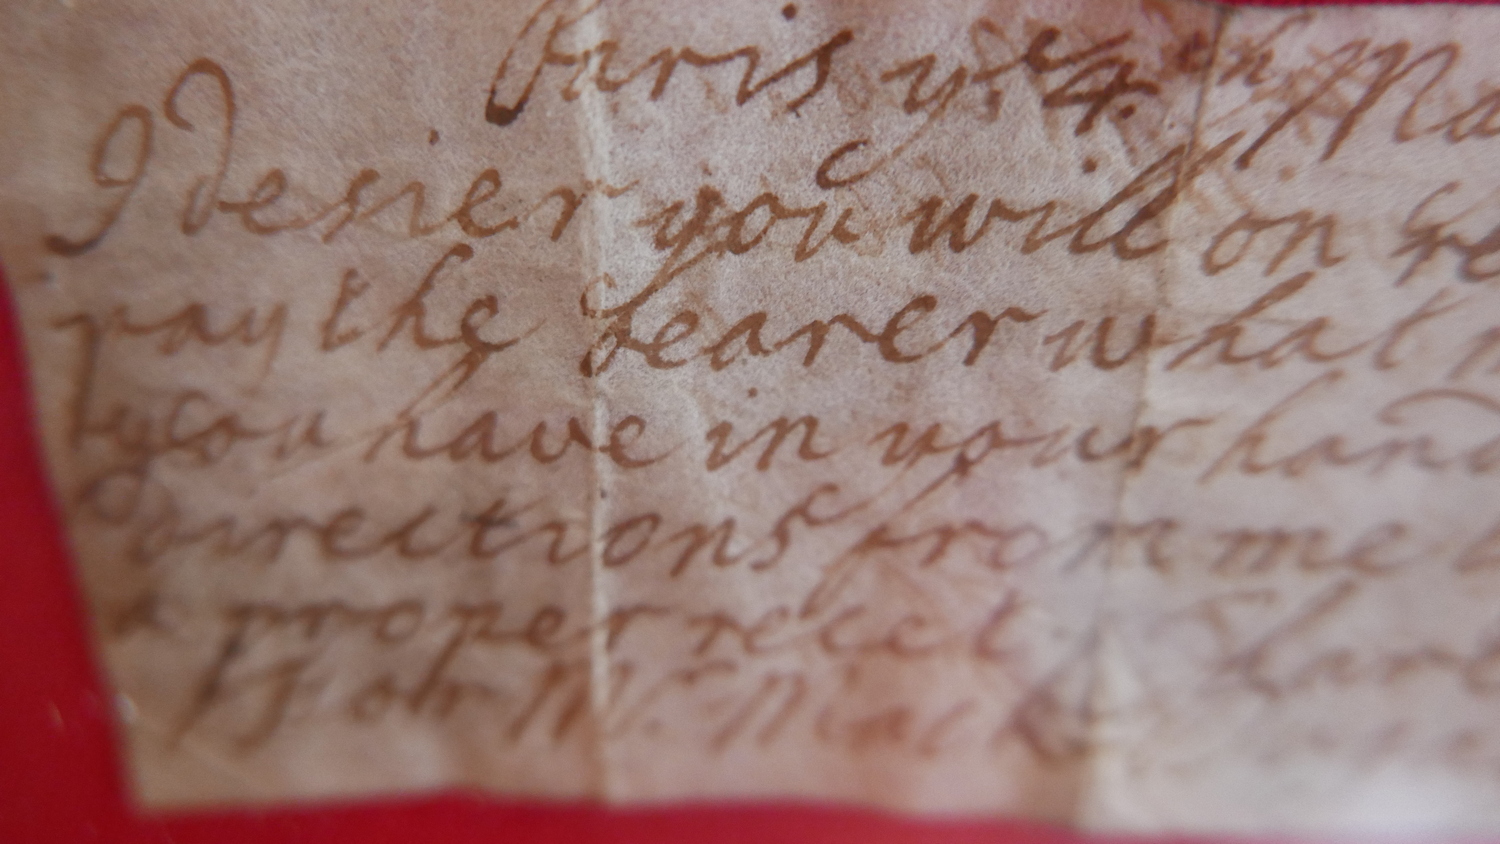 Paris yᵉ 4th Ma
I desier you will on re
pay the bearer what
you have in your hand
directions from me
a proper recet Charl
For Mr. Mac